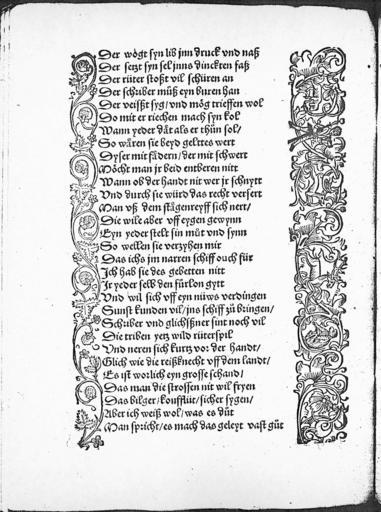 Der wögt syn lib jnn druck vnd naß
Der setzt syn sel jnns dinckten faß
Der rüter stoßt vil schüren an
Der schriber müß eyn buren han
Der veißt syg/ vnd mög trieffen wol
Do mit er riechen mach syn kol
Wann yeder dät als er thün sol/
So wären sie beyd geltes wert
Dyser mit fädern/ der mit schwert
Möcht man jr beid entberen nitt
Wann ob der handt nit wer jr schnytt
Vnd durch sie würd das recht versert
Man vß dem stägenreyff sich nert/
Die wile aber vff eygen gewynn
Eyn yeder stelt sin müt vnd synn
So wellen sie verzyhen mir
Das ichs jm narren schiff ouch für
Jch hab sie des gebetten nitt
Jr yeder selb den fürlon gytt
Vnd wil sich vff eyn nüws verdingen
Sunst kunden vil/ jns schiff zü bringen/
Schriber vnd glichßner sint noch vil
Die triben yetz wild rüterspil
Vnd neren sich kurtz vor der handt/
Glich wie die reißknecht vff dem landt/
Es ist worlich eyn grosse schand/
Das man die strossen nit wil fryen
Das bilger/ koufflüt/ sicher sygen/
Aber ich weiß wol/ was es düt
Man spricht/ es mach das geleyt vast güt